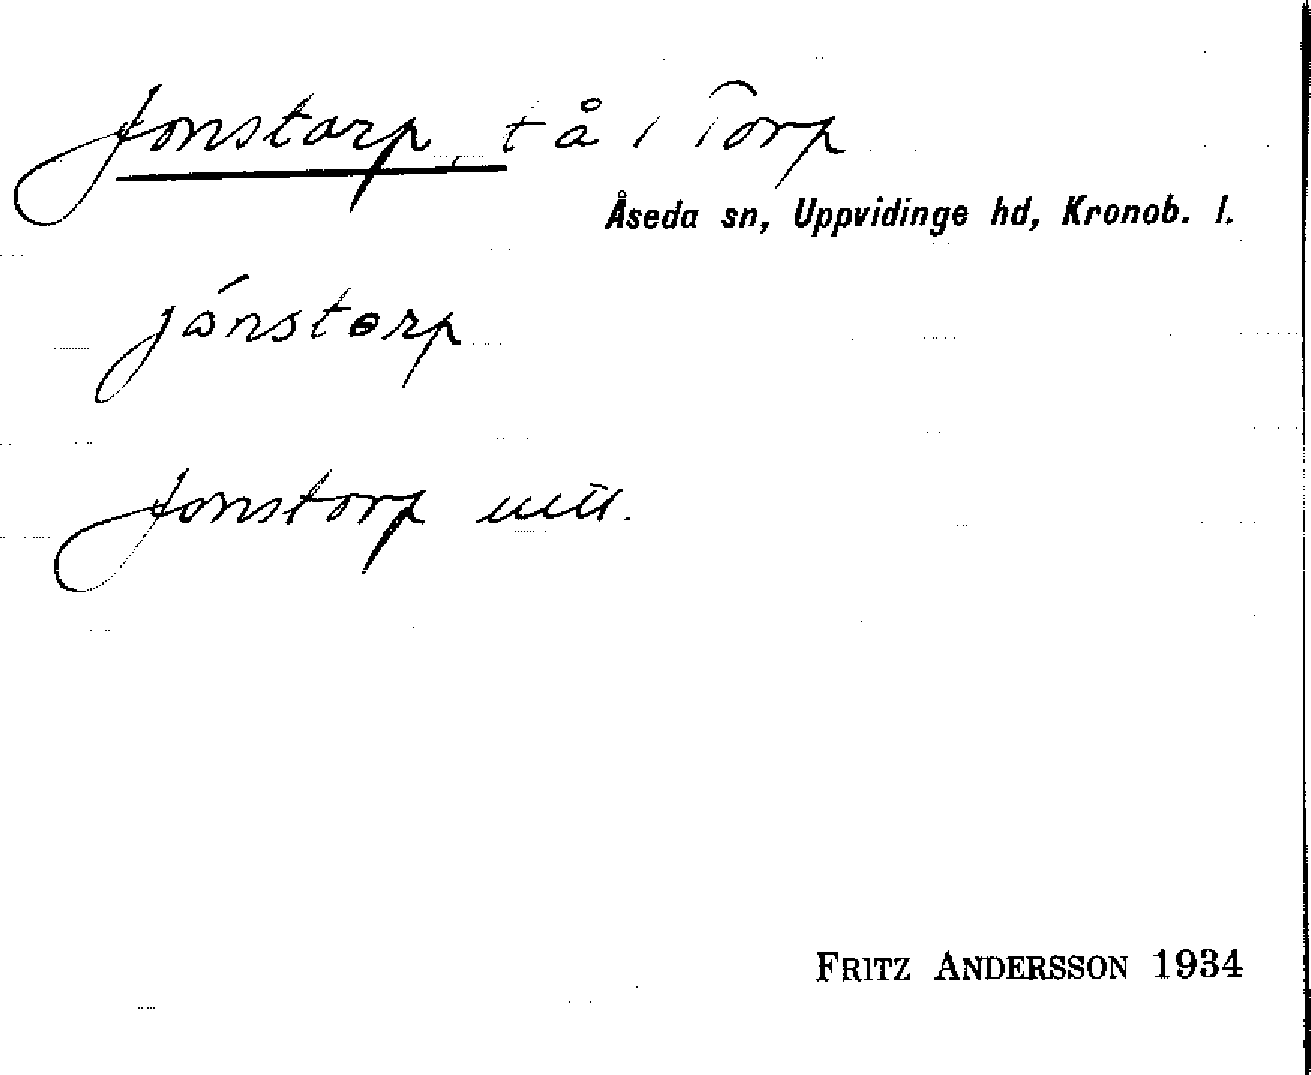 Jonstorp, t å i Torp
Åseda sn, Uppvidinge hd, Kronob. l.
jónstorp
Jonstorp
FRITZ ANDERSSON 1934